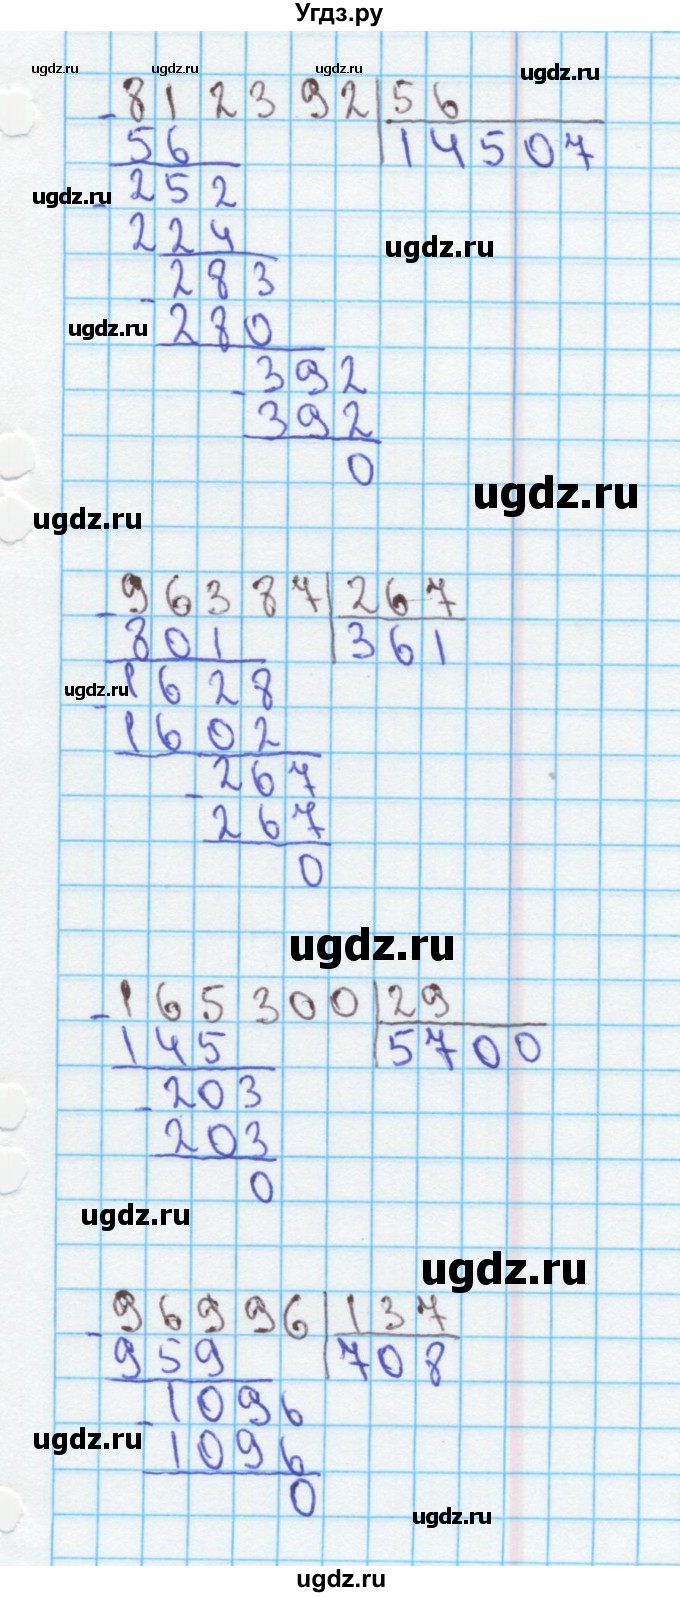 Угдз.ру
ugdz.ru ugdz.ru ugdz.ru ugdz.ru
- 812392 | 56
56 | 14507
ugdz.ru
- 252
224
ugdz.ru
- 283
ugdz.ru
280
- 392
392
0
ugdz.ru
ugdz.ru
- 96387 | 267
801 | 361
ugdz.ru
- 1628
1602
- 267
267
0
ugdz.ru
- 165300 | 29
145 | 5700
- 203
203
0
ugdz.ru
ugdz.ru
- 96996 | 137
959 | 708
- 1096
ugdz.ru
1096
0
ugdz.ru
ugdz.ru